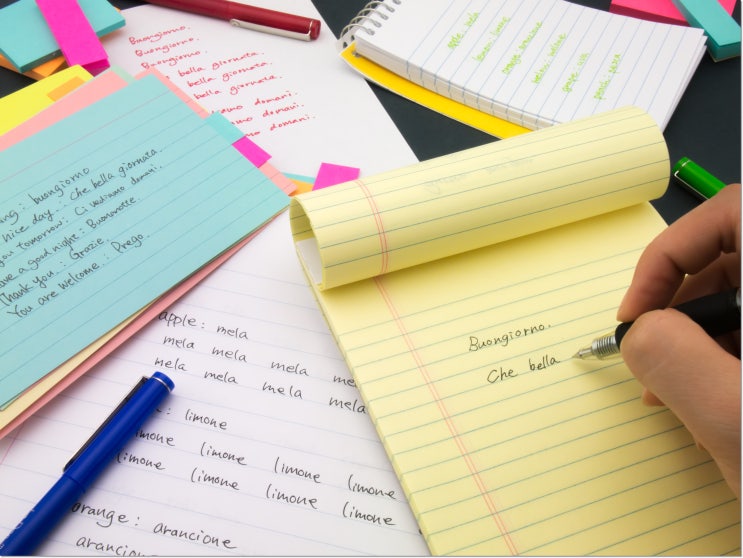 Buongiorno.
Buongiorno.
Buongiorno.
bella giornata.
bella giornata.
bella giornata.
domani.
domani.
domani.
mela
limone
arancione
buongiorno
nice day : Che bella giornata.
you tomorrow : Ci vediamo domani.
have a good night : Buonanotte.
Thank you : Grazie.
You are welcome : Prego.
apple : mela
mela mela mela
mela mela mela mela
: limone
limone limone limone limone
limone limone limone limone
orange : arancione
arancione
Buongiorno.
Che bella